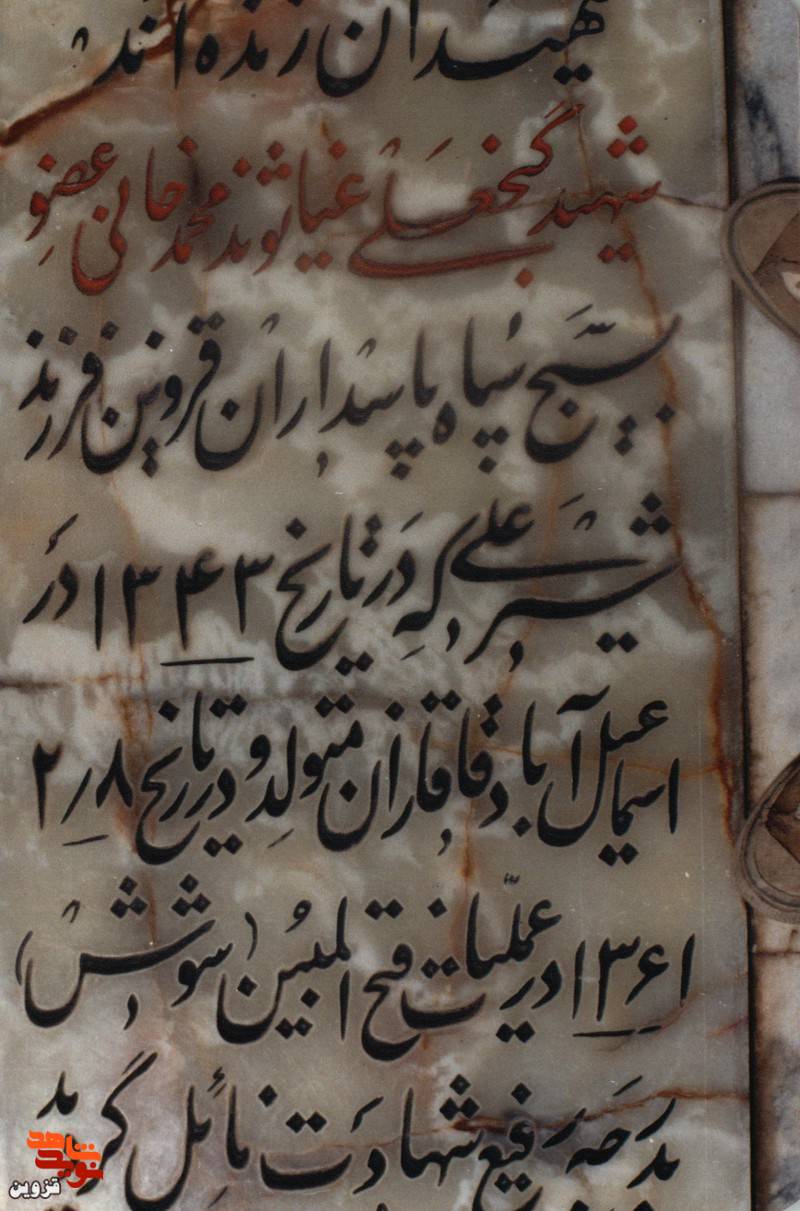 شهیدان زنده اند
شهید گنجعلی غیاثوند محمدخانی عضو
بسیج سپاه پاسداران قزوین فرزند
شیرعلی که در تاریخ ۱۳۴۳ در
اسماعیل آباد قاقازان متولد و در تاریخ ۲٫۸
۱۳۶۱ در عملیات فتح المبین (شوش)
بدرجه رفیع شهادت نائل گردید
شاهد
نوید
قزوین